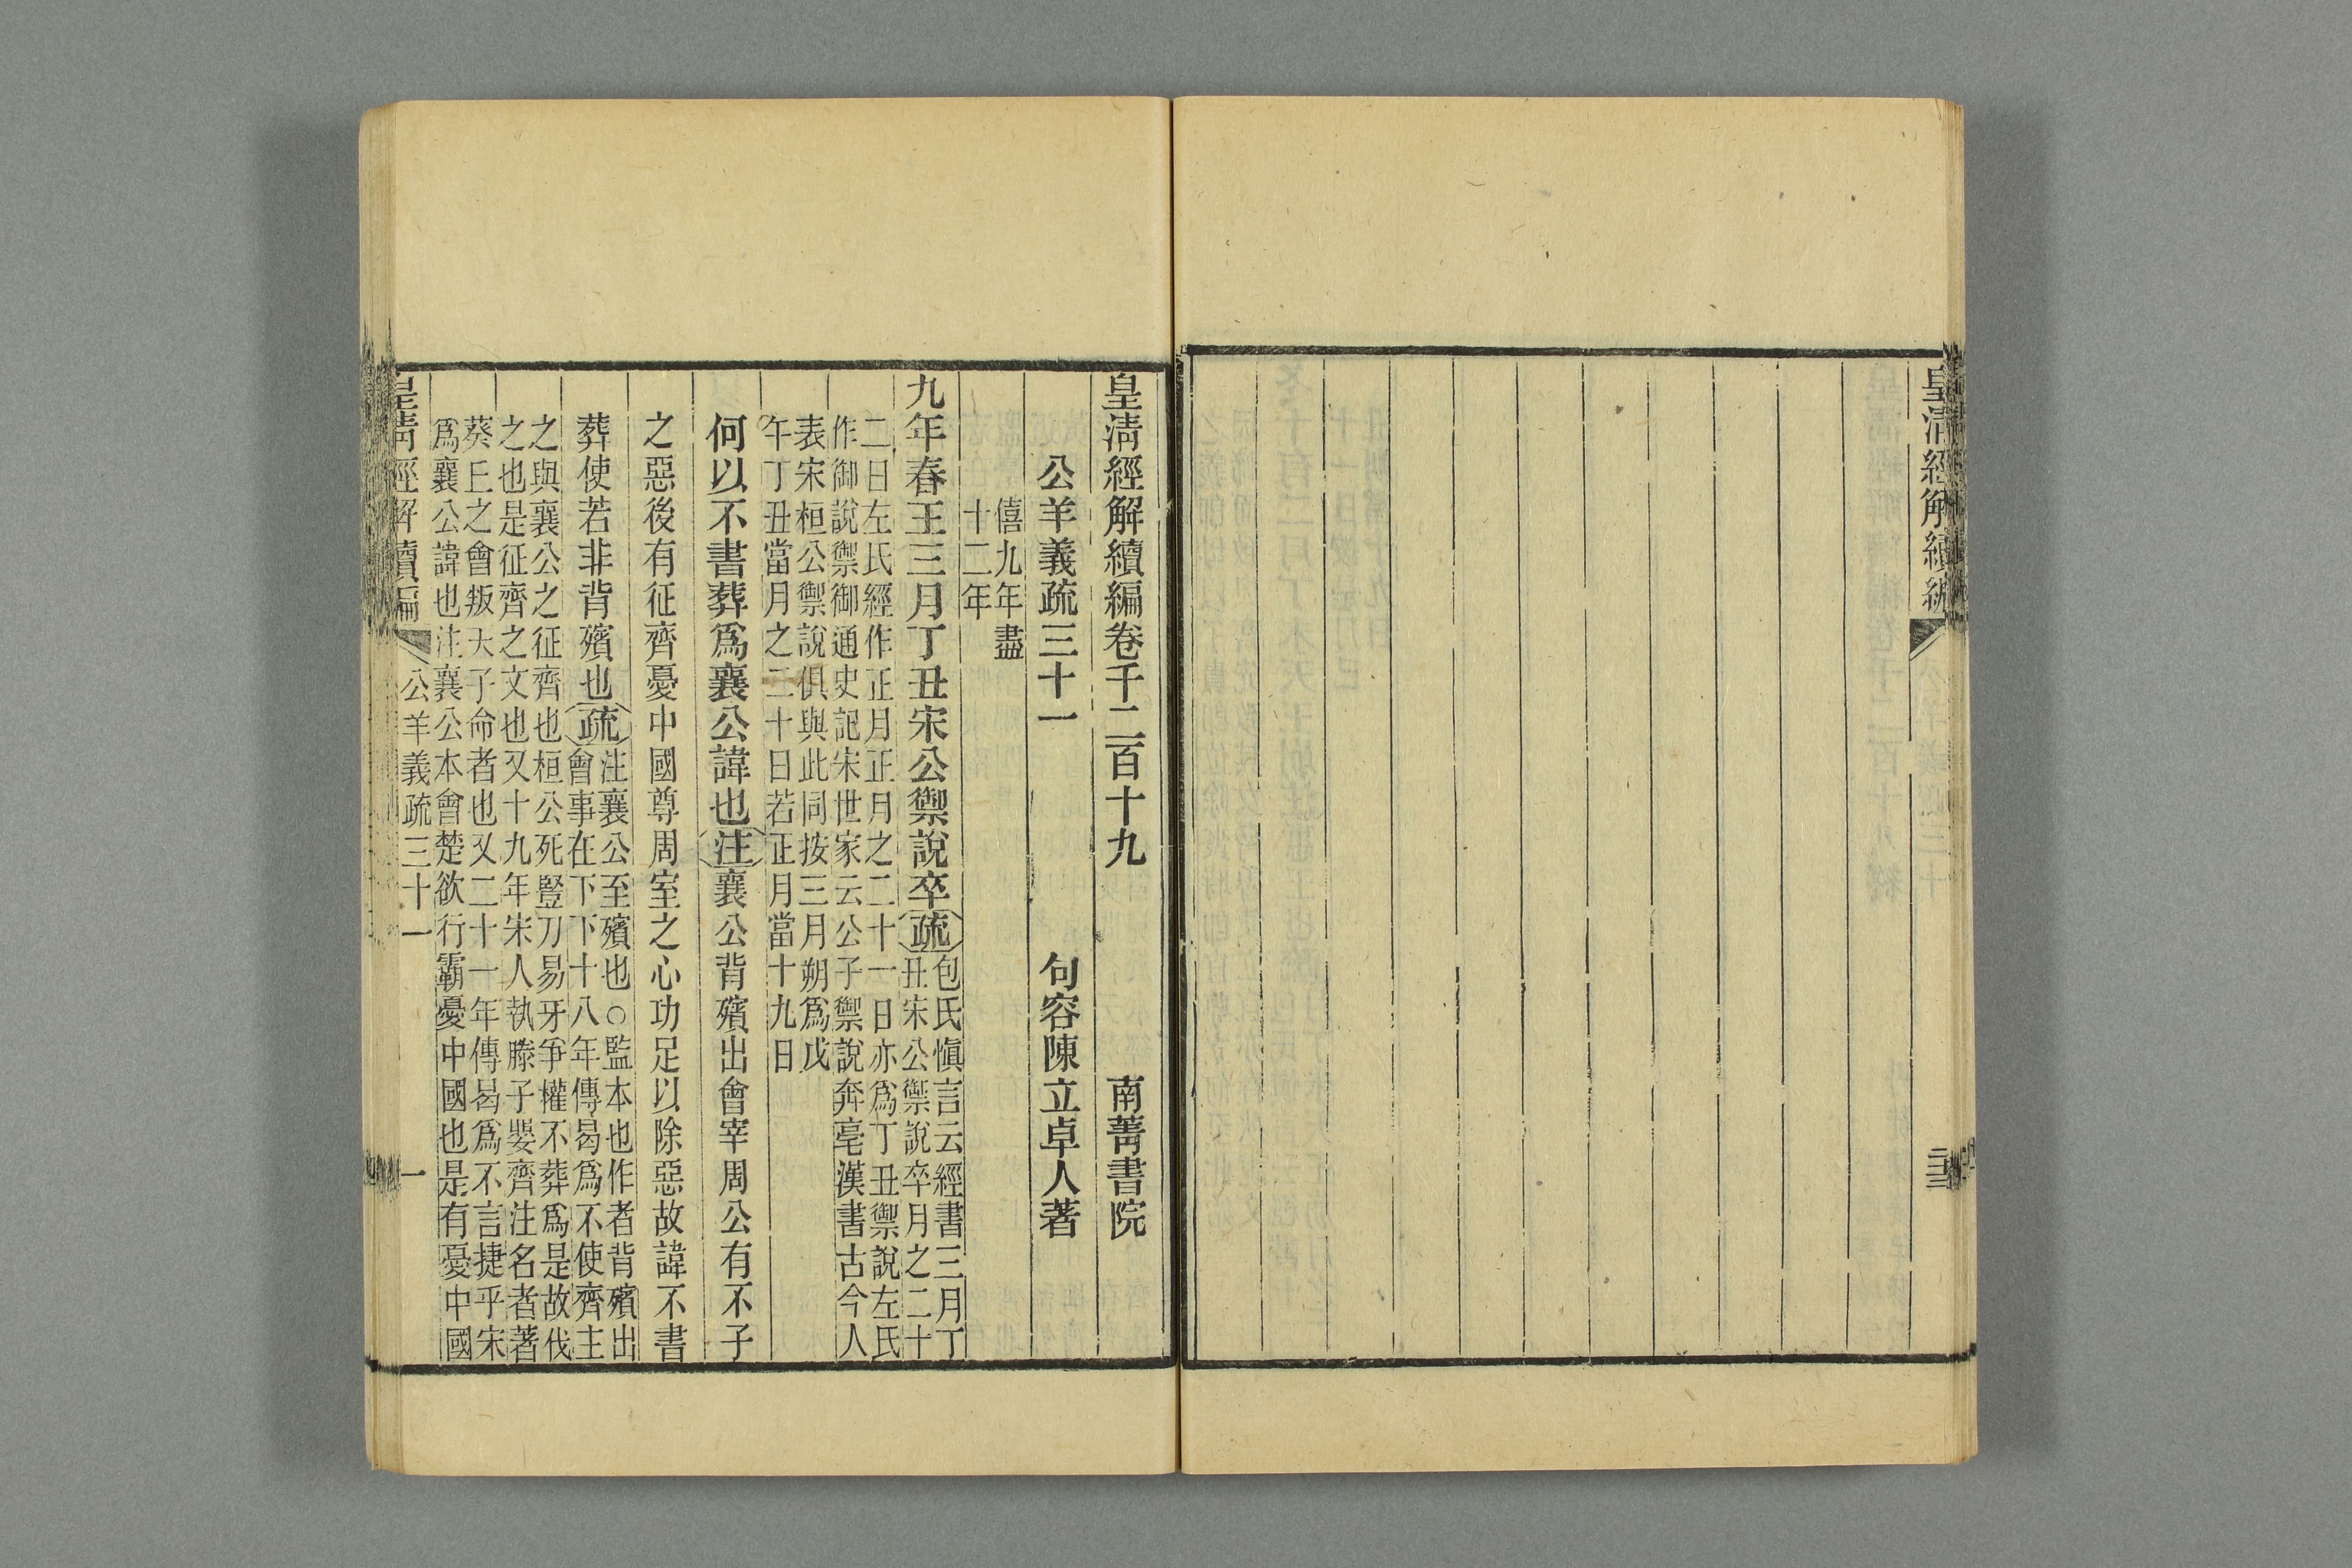 皇清經解續編
皇清經解續編卷千二百十九 南菁書院
公羊義疏三十一 句容陳立卓人著
僖九年盡
十二年
九年春王三月丁丑宋公禦說卒疏包氏愼言云經書三月丁
丑宋公禦說卒月之二十
二日左氏經作正月正月之二十一日亦爲丁丑禦說左氏
作御說禦御通史記宋世家云公子禦說奔亳漢書古今人
表宋桓公禦說俱與此同按三月朔爲戊
午丁丑當月之二十日若正月當十九日
何以不書葬爲襄公諱也注襄公背殯出會宰周公有不子
之惡後有征齊憂中國尊周室之心功足以除惡故諱不書
葬使若非背殯也疏注襄公至殯也○監本也作者背殯出
會事在下下十八年傳曷爲不使齊主
之與襄公之征齊也桓公死豎刀易牙爭權不葬爲是故伐
之也是征齊之文也又十九年宋人執滕子嬰齊注名者著
葵丘之會叛天子命者也又二十一年傳曷爲不言捷乎宋
爲襄公諱也注襄公本會楚欲行霸憂中國也是有憂中國
皇淸經解續編 公羊義疏三十一 一